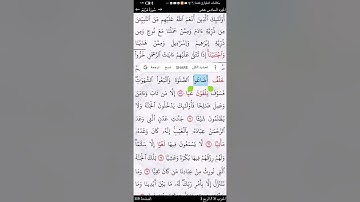 الجزء السادس عشر سورة مريم
أُوْلَٰٓئِكَ ٱلَّذِينَ أَنْعَمَ ٱللَّهُ عَلَيْهِم مِّنَ ٱلنَّبِيِّـۧنَ
مِن ذُرِّيَّةِ ءَادَمَ وَمِمَّنْ حَمَلْنَا مَعَ نُوحٍ وَمِن
ذُرِّيَّةِ إِبْرَٰهِيمَ وَإِسْرَٰٓءِيلَ وَمِمَّنْ هَدَيْنَا
وَٱجْتَبَيْنَآ إِذَا تُتْلَىٰ عَلَيْهِمْ ءَايَٰتُ ٱلرَّحْمَٰنِ خَرُّوا۟
تحديد الكل SHARE نسخ ترجمة
خَلْفٌ أَضَاعُوا۟ ٱلصَّلَوٰةَ وَٱتَّبَعُوا۟ ٱلشَّهَوَٰتِ
فَسَوْفَ يَلْقَوْنَ غَيًّا إِلَّا مَن تَابَ وَءَامَنَ
وَعَمِلَ صَٰلِحًا فَأُو۟لَٰٓئِكَ يَدْخُلُونَ ٱلْجَنَّةَ وَلَا
يُظْلَمُونَ شَيْـًٔا جَنَّٰتِ عَدْنٍ ٱلَّتِى وَعَدَ
ٱلرَّحْمَٰنُ عِبَادَهُۥ بِٱلْغَيْبِ إِنَّهُۥ كَانَ وَعْدُهُۥ
مَأْتِيًّا لَّا يَسْمَعُونَ فِيهَا لَغْوًا إِلَّا سَلَٰمًا
وَلَهُمْ رِزْقُهُمْ فِيهَا بُكْرَةً وَعَشِيًّا تِلْكَ ٱلْجَنَّةُ
ٱلَّتِى نُورِثُ مِنْ عِبَادِنَا مَن كَانَ تَقِيًّا وَمَا
نَتَنَزَّلُ إِلَّا بِأَمْرِ رَبِّكَ لَهُۥ مَا بَيْنَ أَيْدِينَا وَمَا